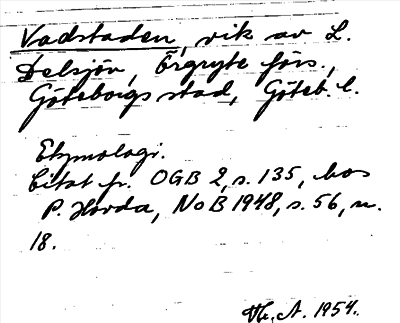 Vadstaden, vik av L.
Delsjön, Örgryte förs.,
Göteborgs stad, Göteb. l.
Etymologi.
Citat fr. OGB 2, s. 135, hos
P. Hovda, NoB 1948, s. 56, n.
18.
Th. A. 1954.